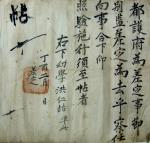 都護府爲差定事
監差定爲去乎察任
向事合下仰
照驗施行須至帖者
右下幼學洪仁 準此
丁 月 日
帖